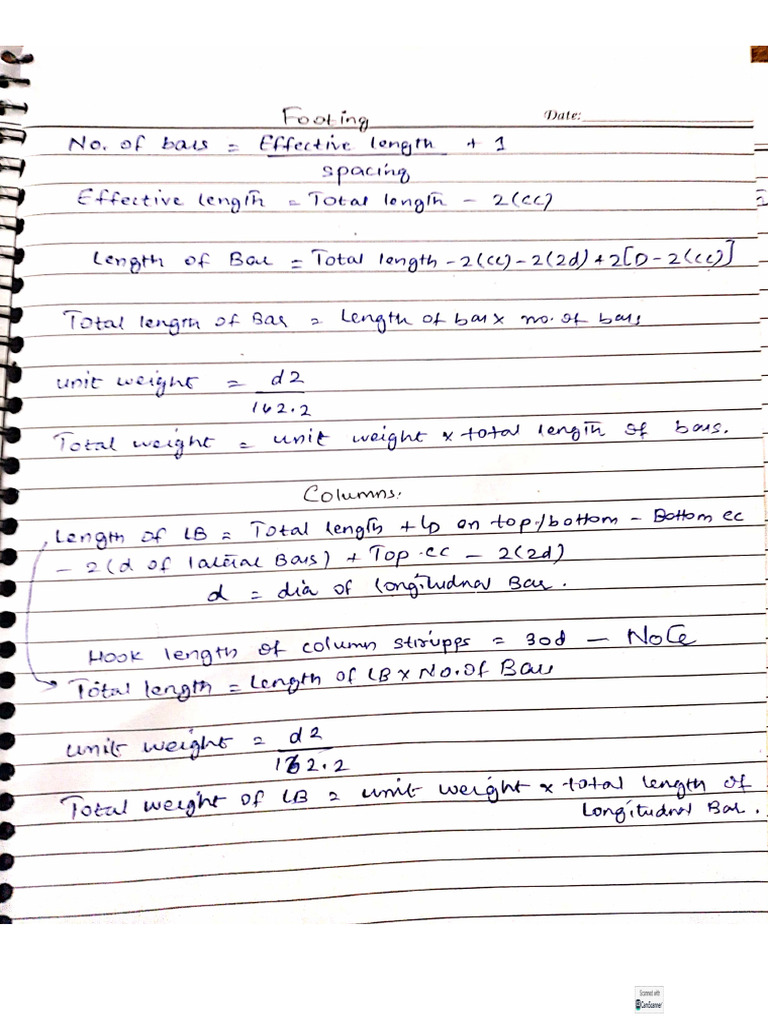 Footing
Date:
No. of bars = Effective length + 1
spacing
Effective length = Total length - 2(cc)
Length of Bar = Total length - 2(cc) - 2(2d) + 2[D - 2(cc)]
Total length of Bar = Length of bar x no. of bars
unit weight = d2
162.2
Total weight = unit weight x total length of bars.
Columns:
Length of LB = Total length + LD on top/bottom - Bottom cc
- 2(d of lateral Bars) + Top cc - 2(2d)
d = dia of longitudnal Bar.
Hook length of column stirupps = 30d - Note
Total length = Length of LB x No. of Bars
unit weight = d2
162.2
Total weight of LB = unit weight x total length of
Longitudnal Bar.
Scanned with
CamScanner